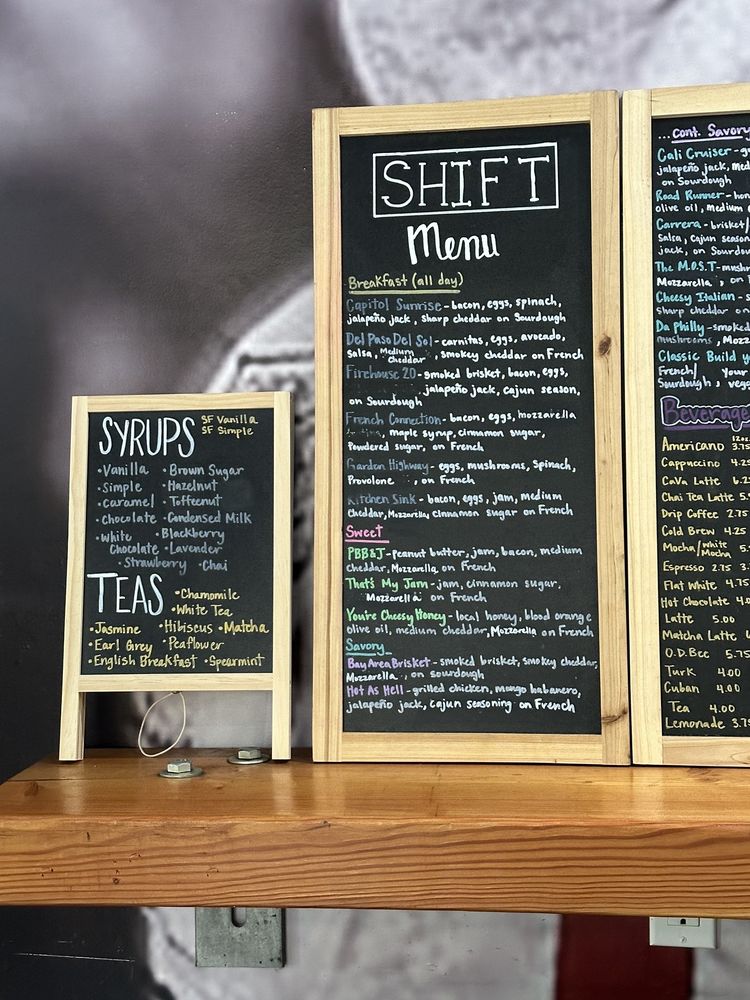 SYRUPS
SF Vanilla
SF Simple
• Vanilla • Brown Sugar
• Simple • Hazelnut
• Caramel • Toffeenut
• Chocolate • Condensed Milk
• White Chocolate • Blackberry
• Lavender
• Strawberry • Chai
TEAS
• Chamomile
• White Tea
• Jasmine • Hibiscus • Matcha
• Earl Grey • Peaflower
• English Breakfast • Spearmint
SHIFT
Menu
Breakfast (all day)
Capitol Sunrise - bacon, eggs, spinach,
jalapeño jack, sharp cheddar on Sourdough
Del Paso Del Sol - carnitas, eggs, avocado,
Salsa, Medium Cheddar, smokey cheddar on French
Firehouse 20 - smoked brisket, bacon, eggs,
jalapeño jack, cajun season,
on Sourdough
French Connection - bacon, eggs, mozzarella
, maple syrup, cinnamon sugar,
Powdered sugar, on French
Garden Highway - eggs, mushrooms, Spinach,
Provolone , on French
Kitchen Sink - bacon, eggs, jam, medium
Cheddar, Mozzarella, cinnamon sugar on French
Sweet
PBB&J - peanut butter, jam, bacon, medium
cheddar, Mozzarella, on French
That's My Jam - jam, cinnamon sugar,
Mozzarella on French
You're Cheesy Honey - local honey, blood orange
olive oil, medium cheddar, Mozzarella on French
Savory
Bay Area Brisket - smoked brisket, smokey cheddar,
Mozzarella, on sourdough
Hot As Hell - grilled chicken, mango habanero,
jalapeño jack, cajun seasoning on French
...cont. Savory
Cali Cruiser -
jalapeño jack,
on Sourdough
Road Runner -
olive oil, medium
Carrera - brisket/
Salsa, cajun season
jack, on
The M.O.S.T -
Mozzarella, on
Cheesy Italian -
sharp cheddar on
Da Philly - smoked
mushrooms, Mozz
Classic Build
French/ Your
Sourdough,
Beverage
12oz
Americano 3.75
Cappuccino 4.25
CaVa Latte 6.2
Chai Tea Latte 5
Drip Coffee 2.75
Cold Brew 4.25
Mocha/White Mocha 5
Espresso 2.75 3
Flat White 4.75
Hot Chocolate 4.0
Latte 5.00
Matcha Latte
O.D.Bee 5.75
Turk 4.00
Cuban 4.00
Tea 4.00
Lemonade 3.75